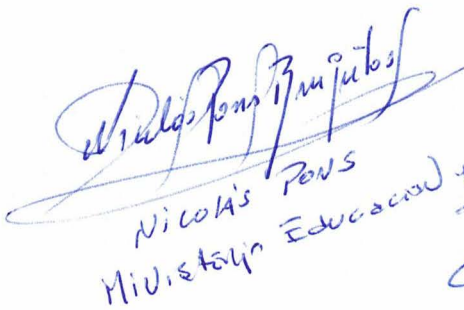 Nicolás Pons
NICOLÁS PONS
MINISTERIO EDUCACIÓN